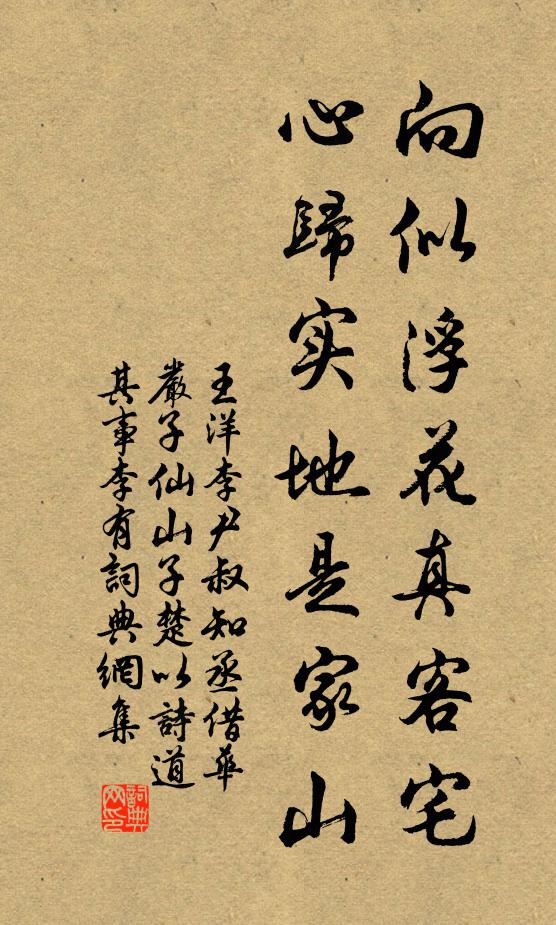 向似浮花真客宅
心歸实地是家山
王洋李尹叔知丞借華
嚴子仙山子楚以詩道
其事李有詞典網集
詞典网印